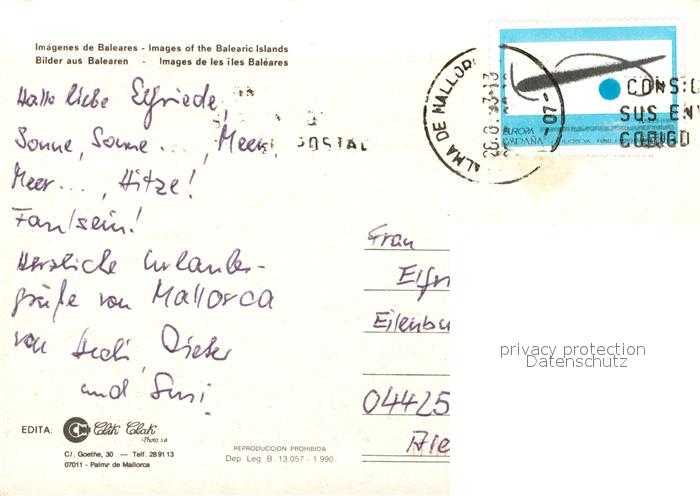 Imágenes de Baleares - Images of the Balearic Islands
Bilder aus Balearen - Images de les îles Baléares
Hallo liebe Elfriede,
Sonne, Sonne ..., Meer,
Meer ..., Hitze!
Faulsein!
Herzliche Urlaubs-
grüße von Mallorca
von Heidi, Dieter
und Susi!
POSTAL
PALMA DE MALLORCA
-07-
CONS:G
SUS EN
CODIGO
EUROPA
ESPAÑA
Frau
Elfri
Eilenbu
04425
privacy protection
Datenschutz
EDITA:
Clik Clak
Photo s.a.
C/. Goethe, 30 — Telf. 28 91 13
07011 - Palma de Mallorca
REPRODUCCION PROHIBIDA
Dep. Leg. B. 13.057 - 1.990